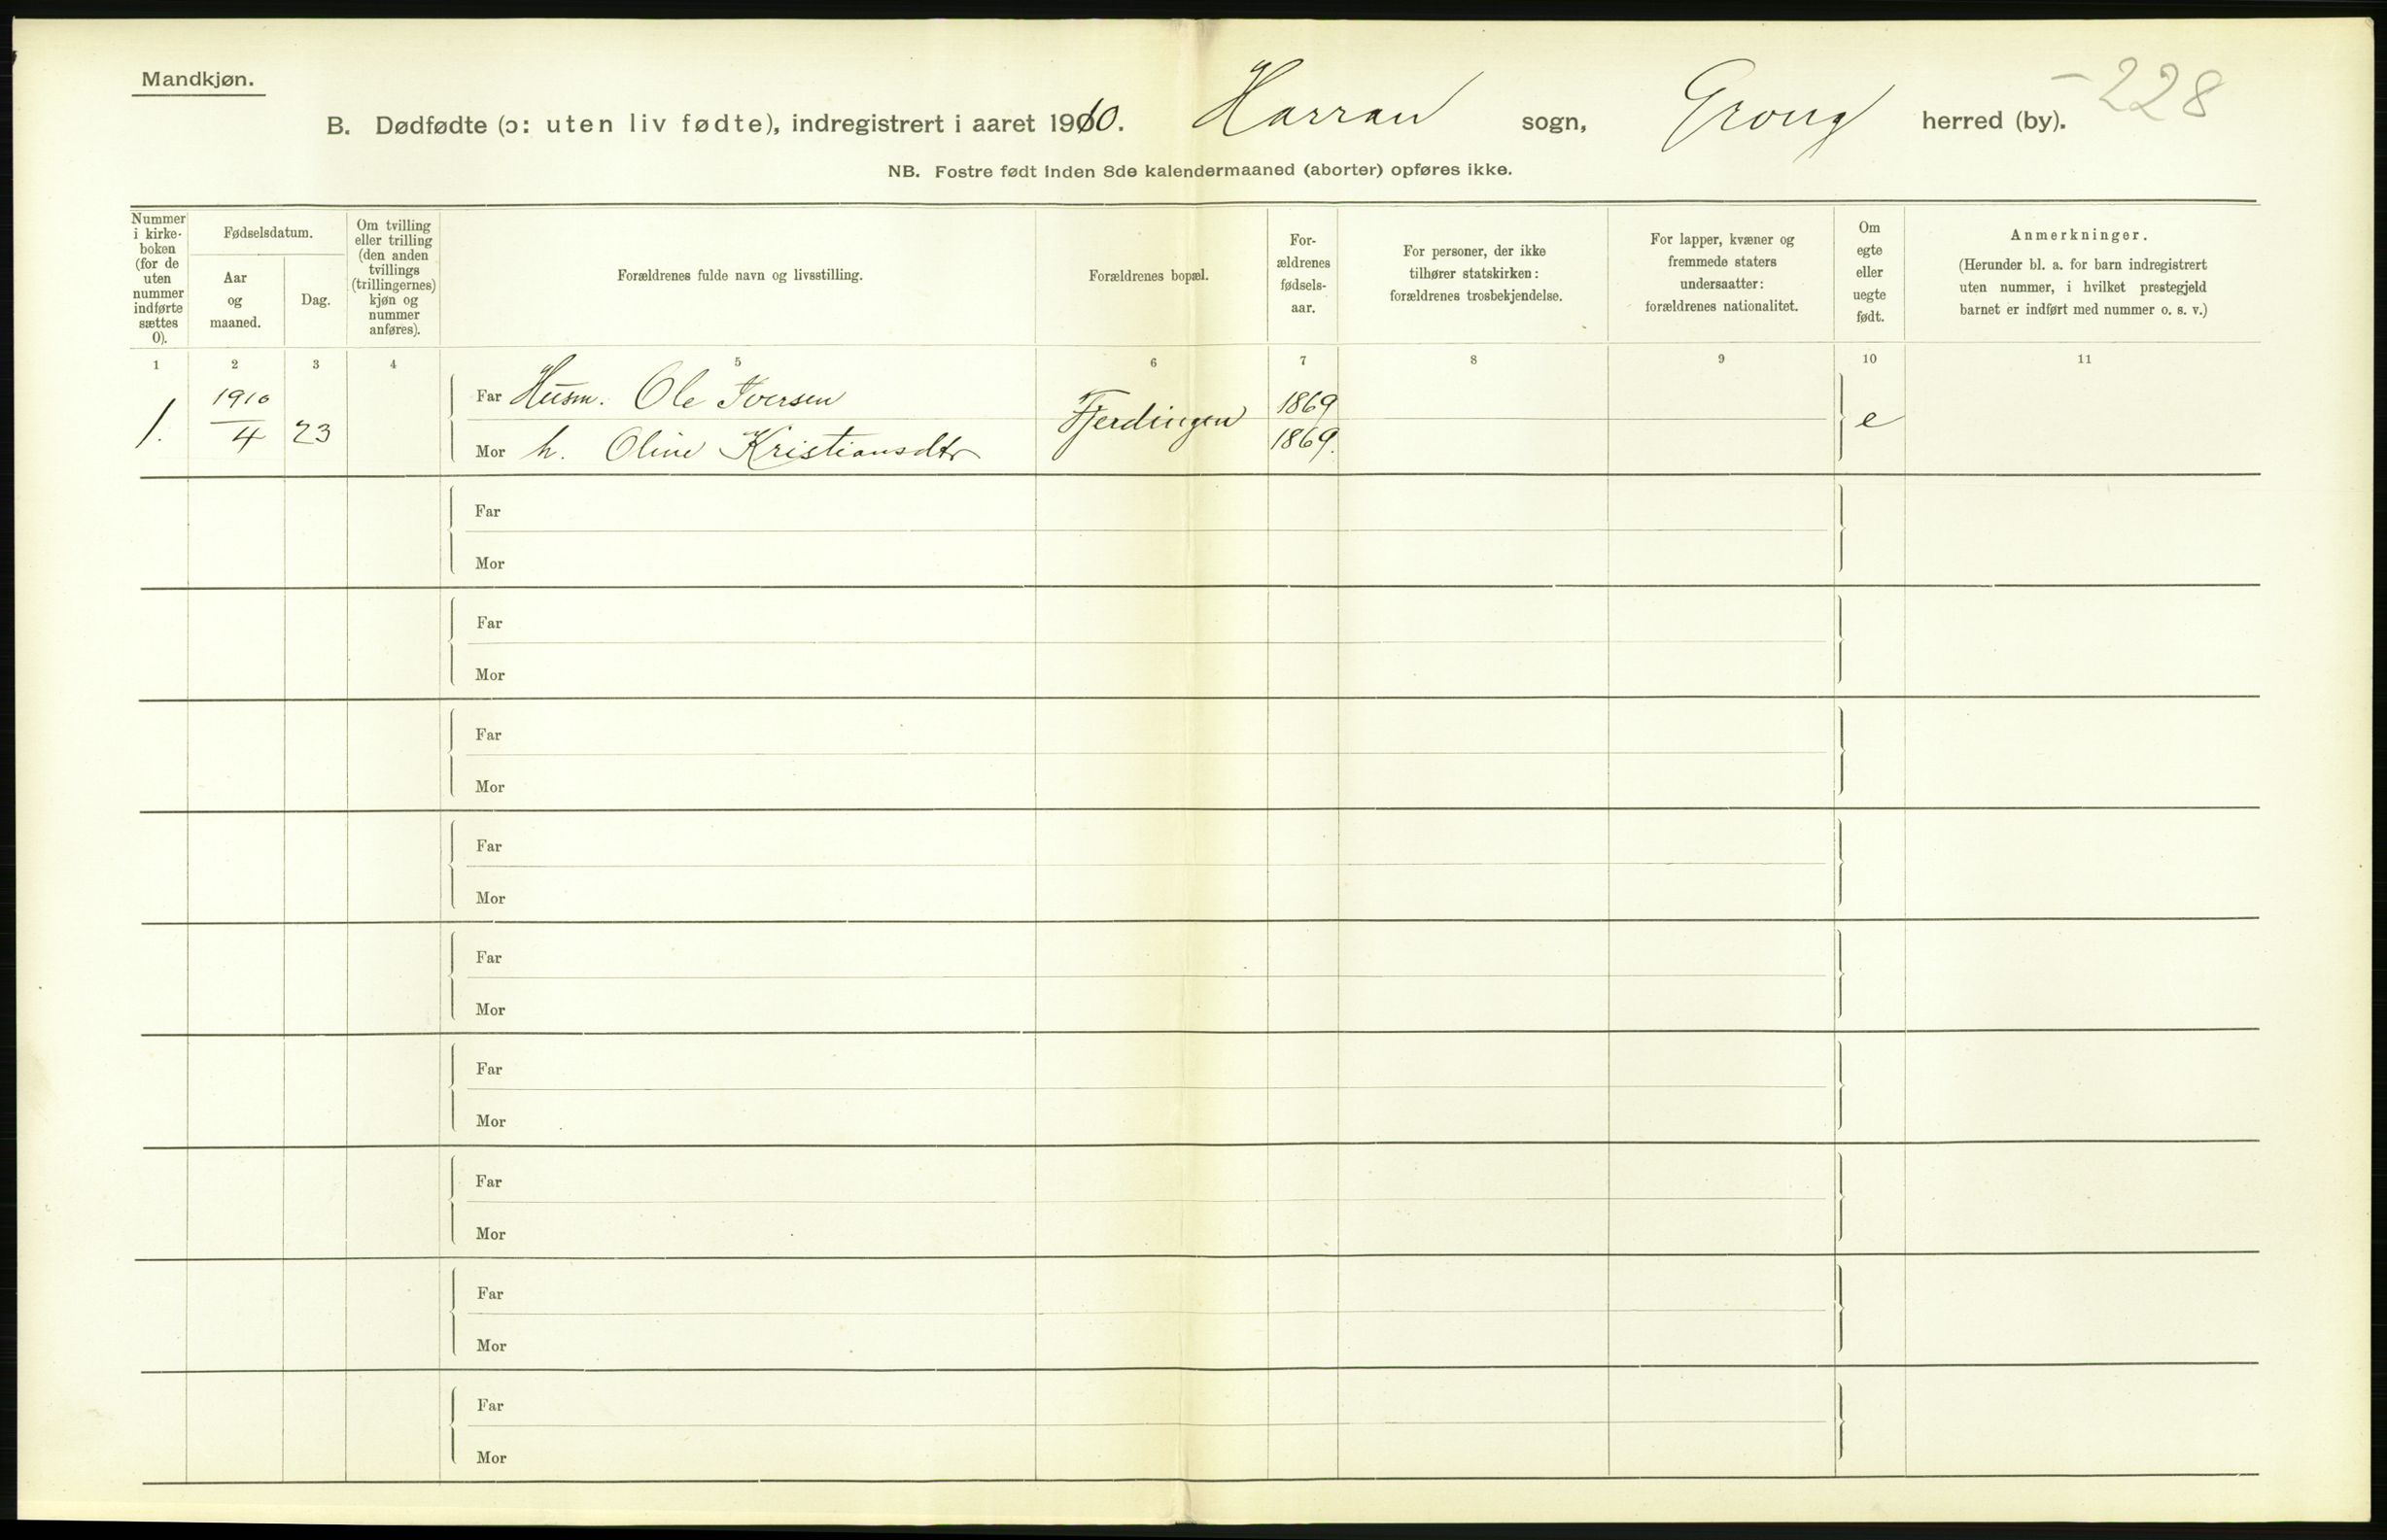 Mandkjøn.
B. Dødfødte (ɔ: uten liv fødte), indregistrert i aaret 1910. Harran sogn, Grong herred (by). -228
NB. Fostre født inden 8de kalendermaaned (aborter) opføres ikke.
Nummer i kirke-boken (for de uten nummer indførte sættes 0).
Fødselsdatum.
Aar og maaned.
Dag.
Om tvilling eller trilling (den anden tvillings (trillingernes) kjøn og nummer anføres).
Forældrenes fulde navn og livsstilling.
Forældrenes bopæl.
For-ældrenes fødsels-aar.
For personer, der ikke tilhører statskirken: forældrenes trosbekjendelse.
For lapper, kvæner og fremmede staters undersaatter: forældrenes nationalitet.
Om egte eller uegte født.
Anmerkninger.
(Herunder bl. a. for barn indregistrert uten nummer, i hvilket prestegjeld barnet er indført med nummer o. s. v.)
1 2 3 4 5 6 7 8 9 10 11
1. 1910/4 23 Far Husm. Ole Iversen Fjerdingen 1869 e
Mor h. Oline Kristiansdtr 1869.
Far
Mor
Far
Mor
Far
Mor
Far
Mor
Far
Mor
Far
Mor
Far
Mor
Far
Mor
Far
Mor